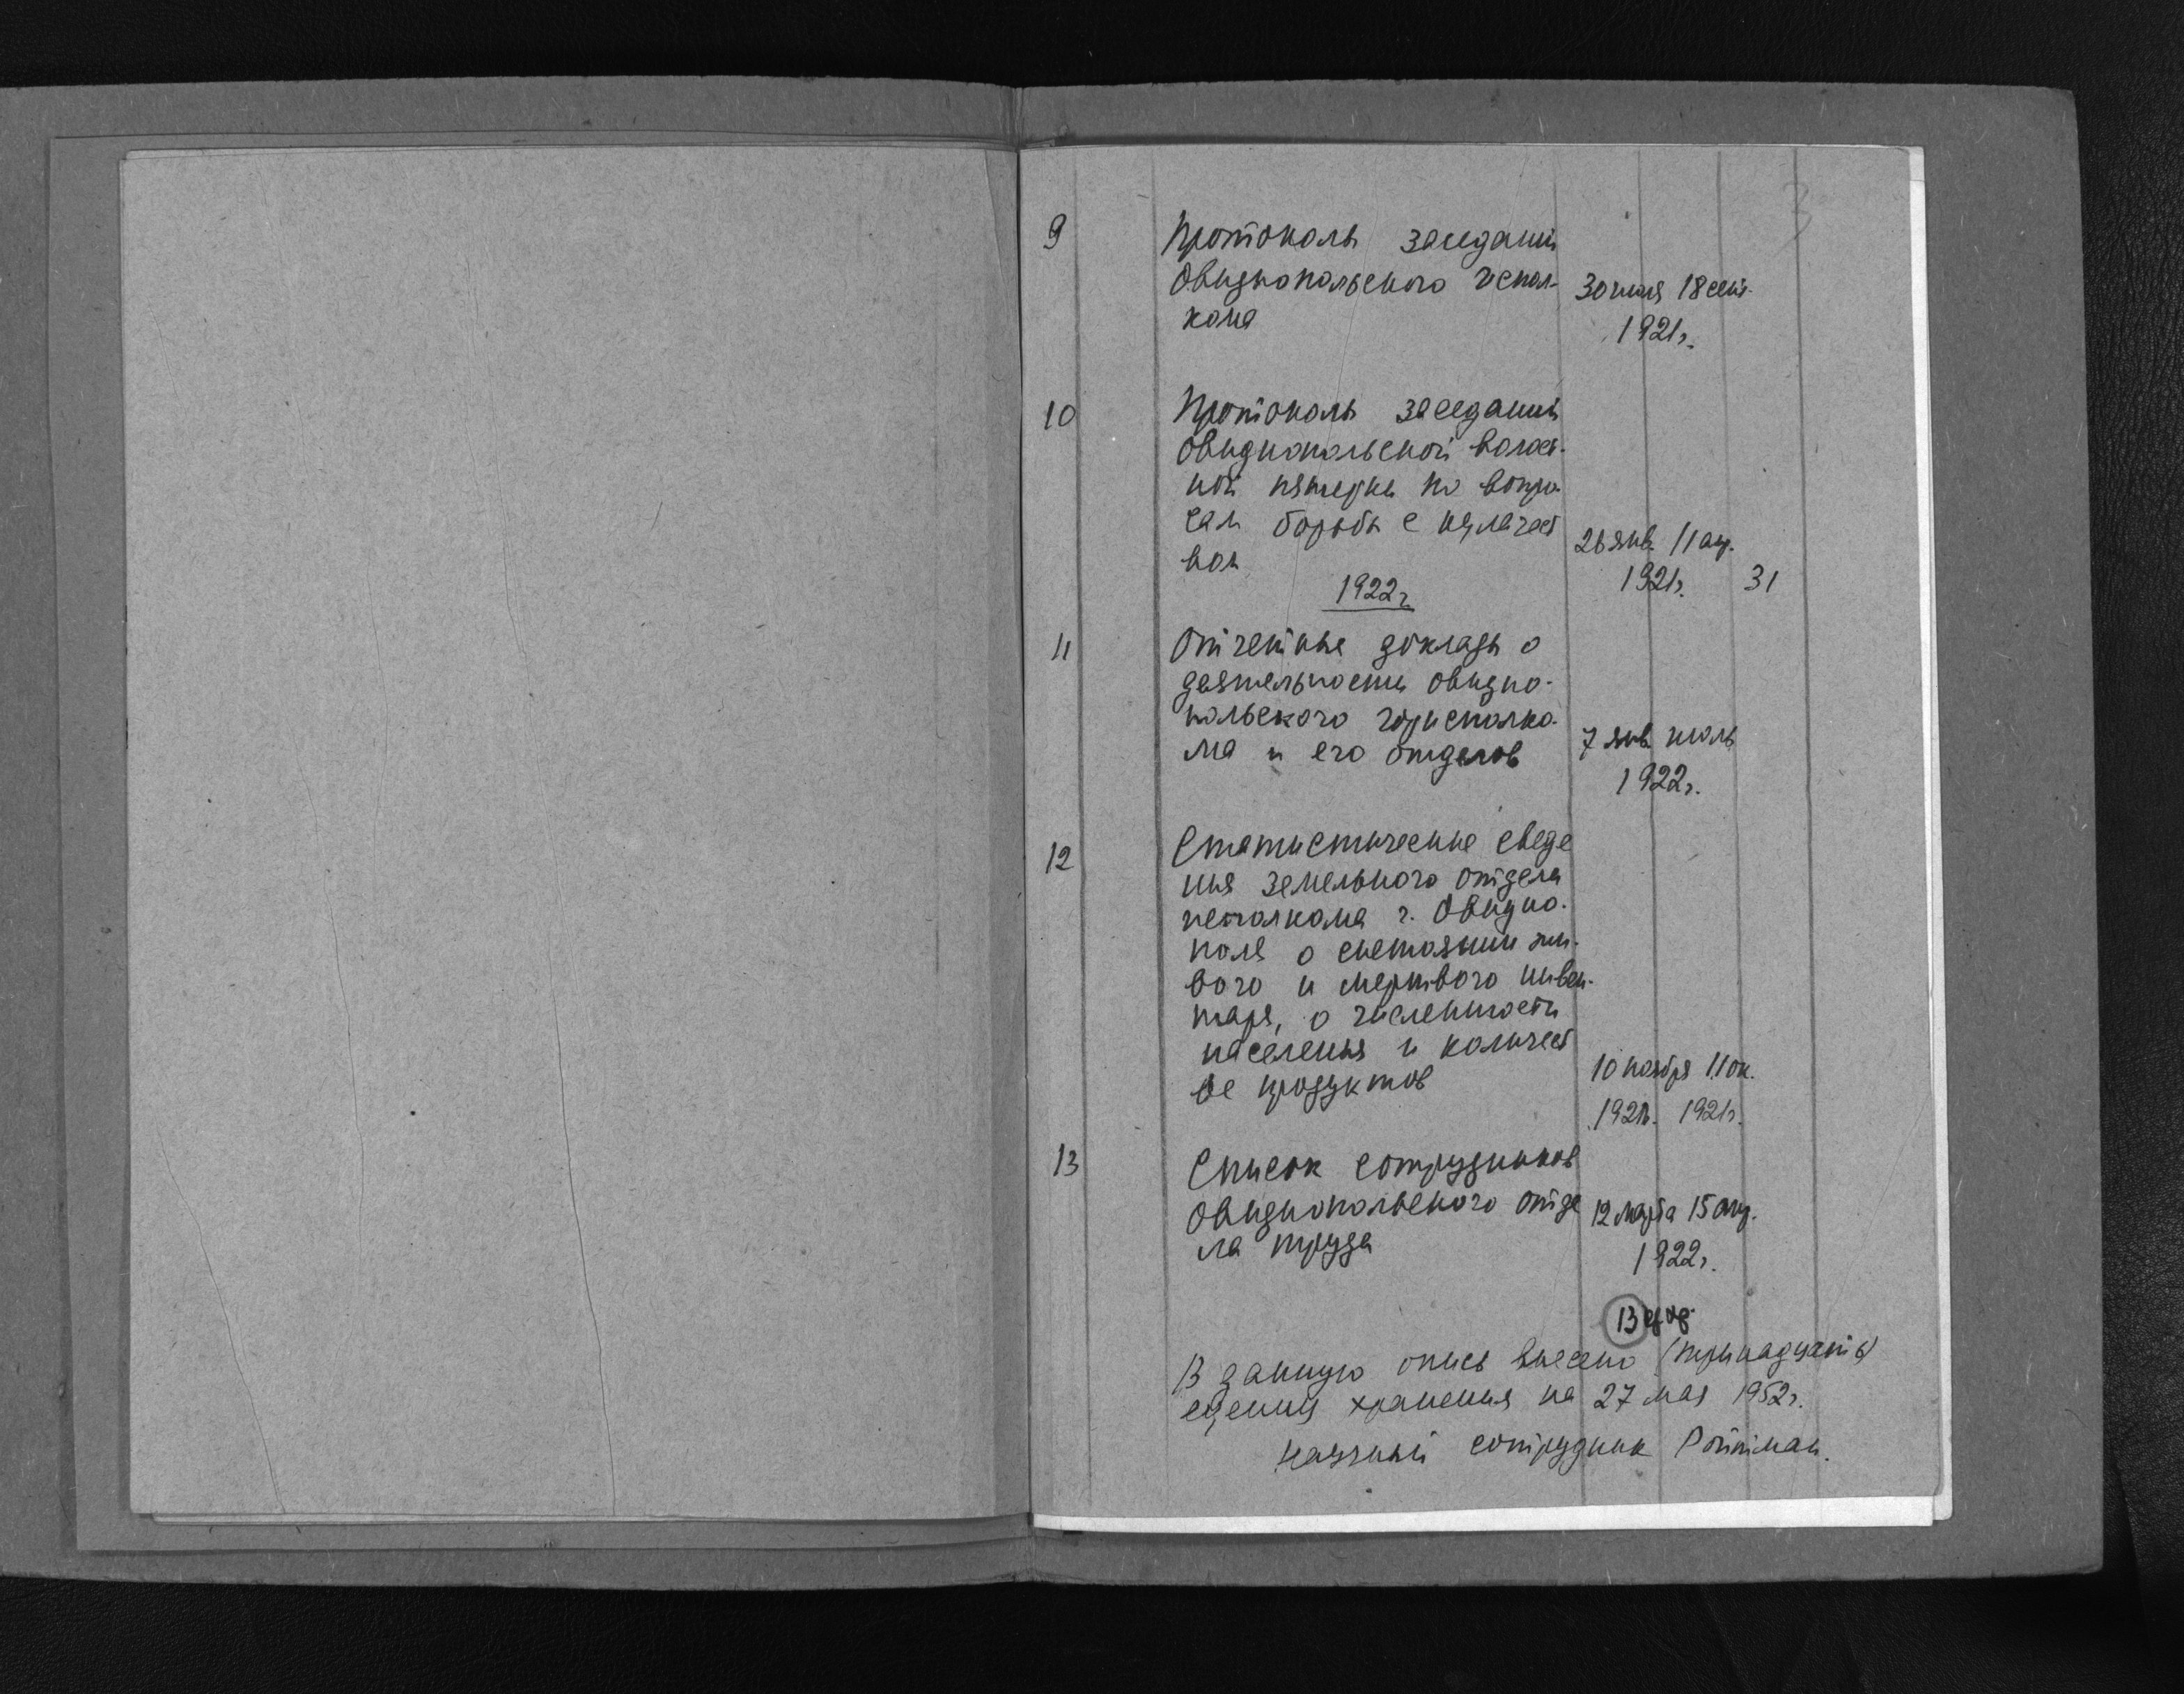 3
9 Протоколы заседаний
Овидиопольского испол-
кома
30 июля 18 сент.
1921г.
10 Протоколы заседаний
Овидиопольской волост-
ной пятерки по вопро-
сам борьбы с кулачест
вом
26 янв. 11 авг.
1921г. 31
1922г.
11 Отчетные доклады о
деятельности Овидио-
польского горисполко-
ма и его отделов
7 янв. июль
1922г.
12 Статистические сведе
ния земельного отдела
исполкома г. Овидио-
поля о состоянии жи-
вого и мертвого инвен-
таря, о численности
населения и количест
ве продуктов
10 ноября 11 ок.
1921г.
13 Список сотрудников
Овидиопольского отде
ла труда
12 марта 15 авг.
1922г.
13
В данную опись внесено (тринадцать)
единиц хранения на 27 мая 1952г.
Научный сотрудник Ройтман.